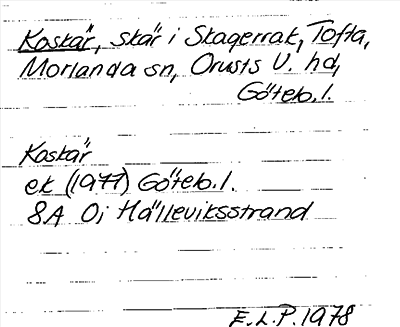 Koskär, skär i Skagerrak, Tofta,
Morlanda sn, Orusts V. hd,
Göteb. l.
Koskär
ek (1977) Göteb. l.
8A 0i Hälleviksstrand
E.L.P. 1978